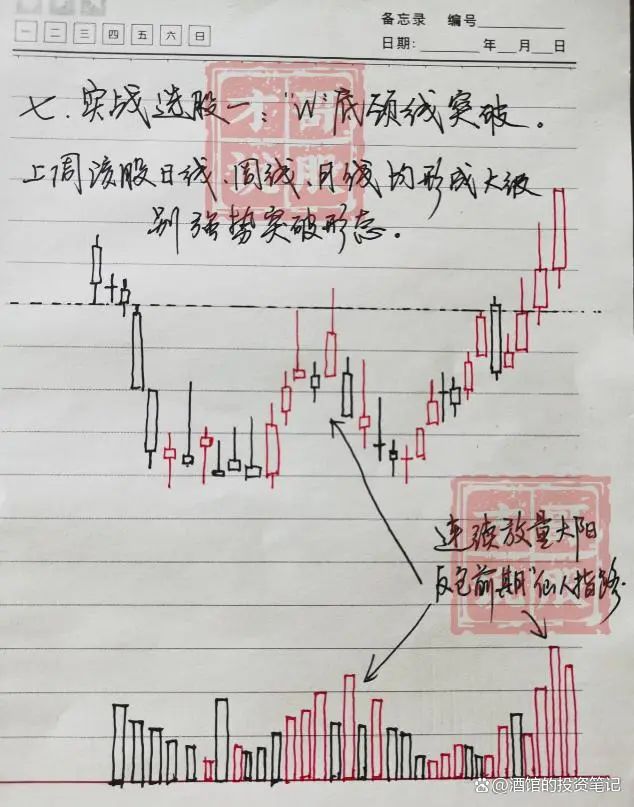 备忘录 编号
一 二 三 四 五 六 日
日期: 年 月 日
七.实战选股一:"W"底颈线突破。
上周该股日线、周线、月线均形成大级
别强势突破形态。
连续放量大阳
反包前期"仙人指路.
酒馆的投资笔记